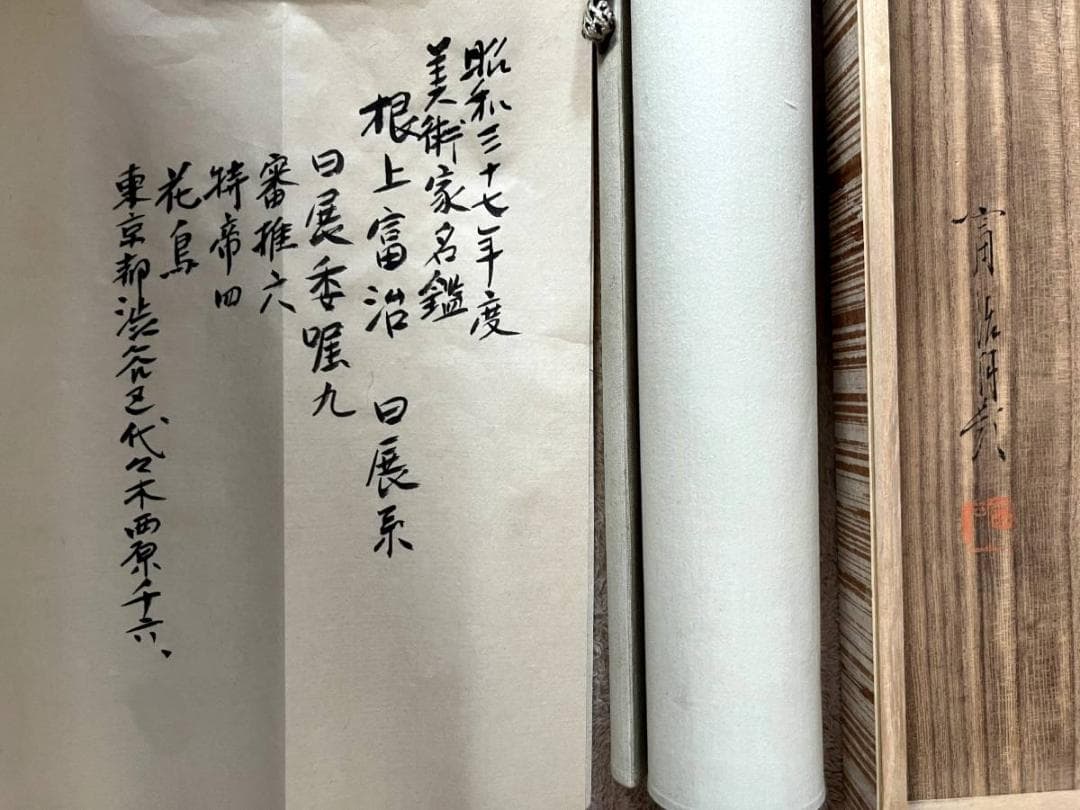 昭和三十七年度
美術家名鑑
根上富治 日展系
日展委嘱九
審推六
特帝四
花鳥
東京都渋谷区代々木西原千六、
富治自賛